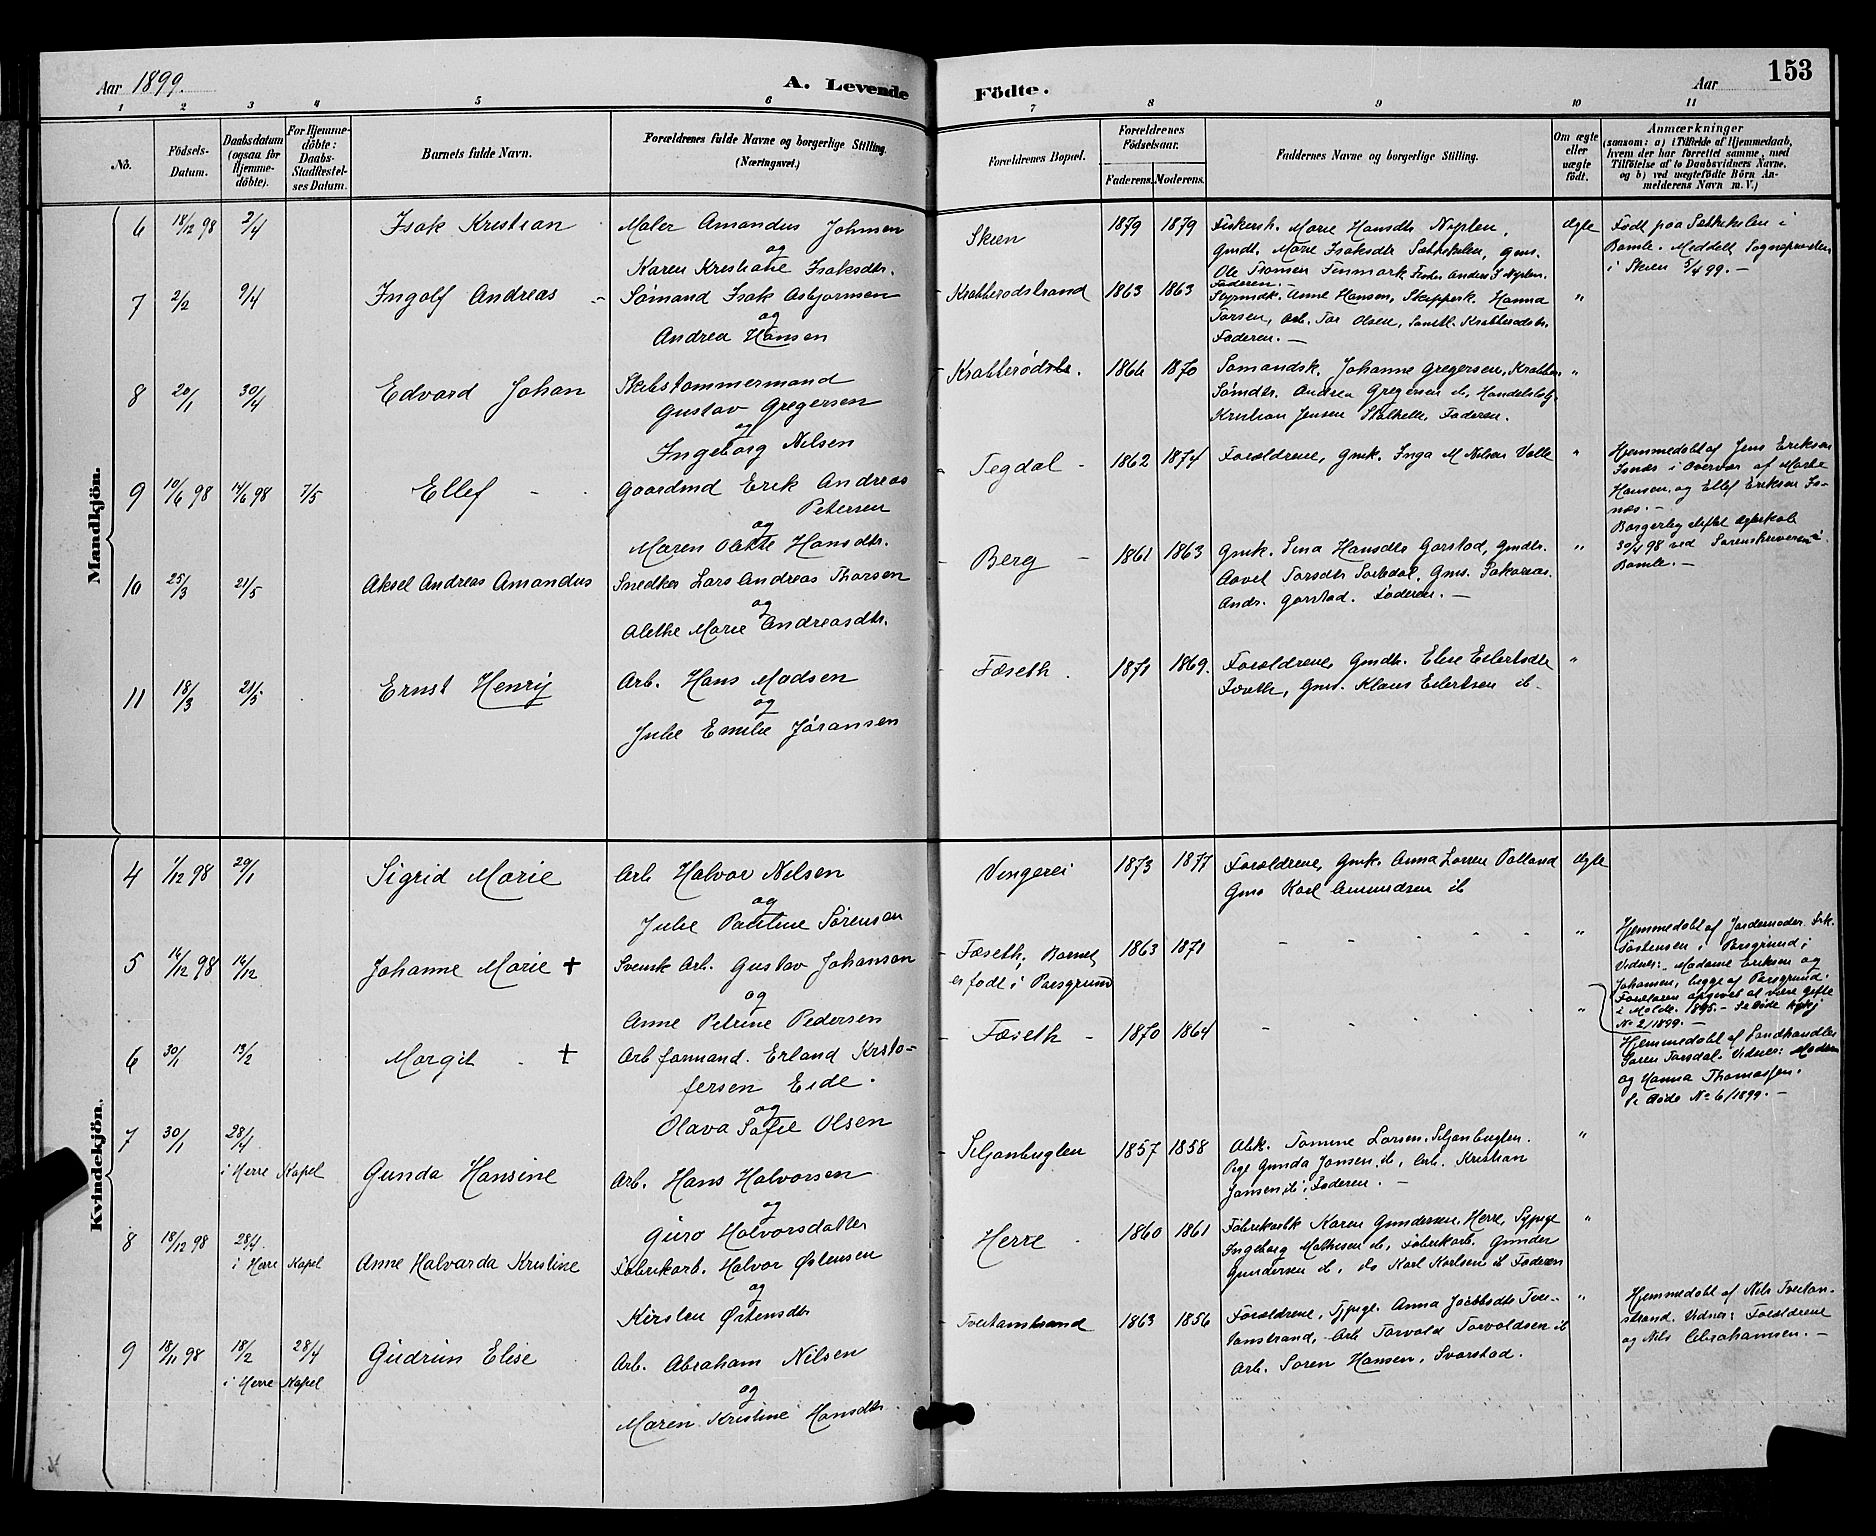 Aar 1899.
A. Levende Födte.
Aar
153
1 2 3 4 5 6 7 8 9 10 11
No.
Födsels-Datum.
Daabsdatum (ogsaa for Hjemme-döbte).
For Hjemme-döbte: Daabs-Stadfæstel-ses Datum.
Barnets fulde Navn.
Forældrenes fulde Navne og borgerlige Stilling. (Næringsvei.)
Forældrenes Bopæl.
Forældrenes Födselsaar.
Faderens. Moderens.
Faddernes Navne og borgerlige Stilling.
Om ægte eller uægte födt.
Anmærkninger
(saasom: a) i Tilfælde af Hjemmedaab,
hvem der har forrettet samme, med
Tilföielse af to Daabsvidners Navne,
og b) ved uægtefödte Börn An-
melderens Navn m. V.)
Mandkjön.
6 18/12 98 2/4 Isak Kristian
Maler Amandus Johnsen
og
Karen Kristiane Isaksdtr.
Skien 1879 1879
Marie Hansdtr Nyplen,
Gmdt. Marie Isaksdtr
Faderen.
Ægte
Födt paa i
Bamle. Meddelt Sognepresten
i Skien 5/4 99. —
7 2/2 9/4 Ingolf Andreas
Sömand Isak Asbjornsen
og
Andrea Hansen
Krabberödstrand 1863 1863
Anne Hansen, Skipperk. Hanna
Torsen, Arb. Tor Olsen,
Faderen. —
"
8 20/1 30/4 Edvard Johan
Skibstommermand
Gustav Gregersen
og
Ingeborg Nilsen
Krabberødstr. 1866 1870
Sømandsk. Johanne Gregersen,
Sömdtr. Andrea Gregersen ib,
Kristian Jensen Stathelle, Faderen.
"
9 10/6 98 14/6 98 7/5 Ellef
Gaardmd Erik Andreas
Petersen
og
Maren Olette Hansdtr.
Tegdal 1862 1874
Forældrene, Gmk. Inga M Nilsen Valle
"
Hjemmedöbt af Jens Eriksen
i Overvær af
Hansen, og Ellef Eriksen
Borgerlig
30/4 98 ved Sorenskriveren i
Bamle. —
10 25/3 21/5 Aksel Andreas Amandus
Snedker Lars Andreas Thorsen
og
Alethe Marie Andreasdtr.
Berg 1861 1863
Gmk. Sina Hansdtr Garstad, Gmdtr.
Torsdtr
Andr. Garstad. Faderen. —
"
11 18/3 21/5 Ernst Henrij
Arb. Hans Madsen
og
Julie Emilie Jöransen
Fæseth 1871 1869.
Forældrene, Gmdtr. Elise Eilertsdtr
Gms. Klaus Eilertsen ib
"
Kvindekjön.
4 1/12 98 29/1 Sigrid Marie
Arb Halvor Nilsen
og
Julie Pauline Sørensen
Vingerei 1873 1877
Forældrene, Gmk. Anna
Gms Karl Amundsen ib
Ægte
5 14/12 98 14/12 Johanne Marie +
Svensk Arb. Gustav Johansen
og
Anne Petrine Pedersen
Fæseth, Barnet
er fodt i Porsgrund
1863 1871
"
Hjemmedöbt af Jordemoder
i Porsgrund;
Vidner: Madame Eriksen og
Johansen, begge af Porsgrund.
Forældrene opgivet at være gifte
i Molde 1895. —
No 2/1899. —
6 30/1 13/2 Margit +
Arb formand. Erland Kristo-
fersen Eide.
og
Olava Sofie Olsen
Fæseth 1870 1864
"
Hjemmedöbt af Landhandler
Søren Torsdal. Vidner: Moderen
og Hanna Thomassen.
Se döde No 6/1899. —
7 30/1 28/4
i Herre Kapel
Gunda Hansine
Arb. Hans Halvorsen
og
Guro Halvorsdatter
Siljanbuglen 1857 1858
Tomine Larsen, Siljanbuglen.
Pige Gunda Jansen ib, Arb. Kristian
Jansen ib, Faderen. —
"
8 18/12 98 28/4
i Herre Kapel
Anne Halvarda Kristine
Fabrikarb. Halvor Østensen
og
Kirsten Østensdtr
Herre 1860 1861
Fabrikarbk Karen Gundersen, Herre,
Ingeborg Mathisen ib, Fabrikarb. Gunder
Gundersen ib, do Karl Karlsen ib Faderen
"
9 18/11 98 18/2 28/4
i Herre Kapel
Gudrun Elise
Arb. Abraham Nilsen
og
Maren Kristine Hansdtr.
Tveitanstrand 1863 1856
Forældrene, Anna Jacobsdtr Tvei-
tanstrand, Arb Torvald Torvaldsen ib
Arb. Søren Hansen, Svarstad.
"
Hjemmedöbt af Nils Tveitan-
strand. Vidner: Forældrene
og Nils Abrahamsen. —